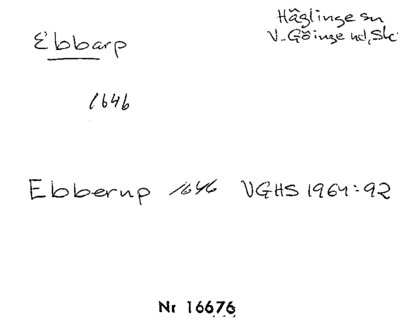 Häglinge sn
V. Göinge hd, Sk
Ebbarp
1646
Ebberup 1646 VGHS 1964:92
Nr 16676